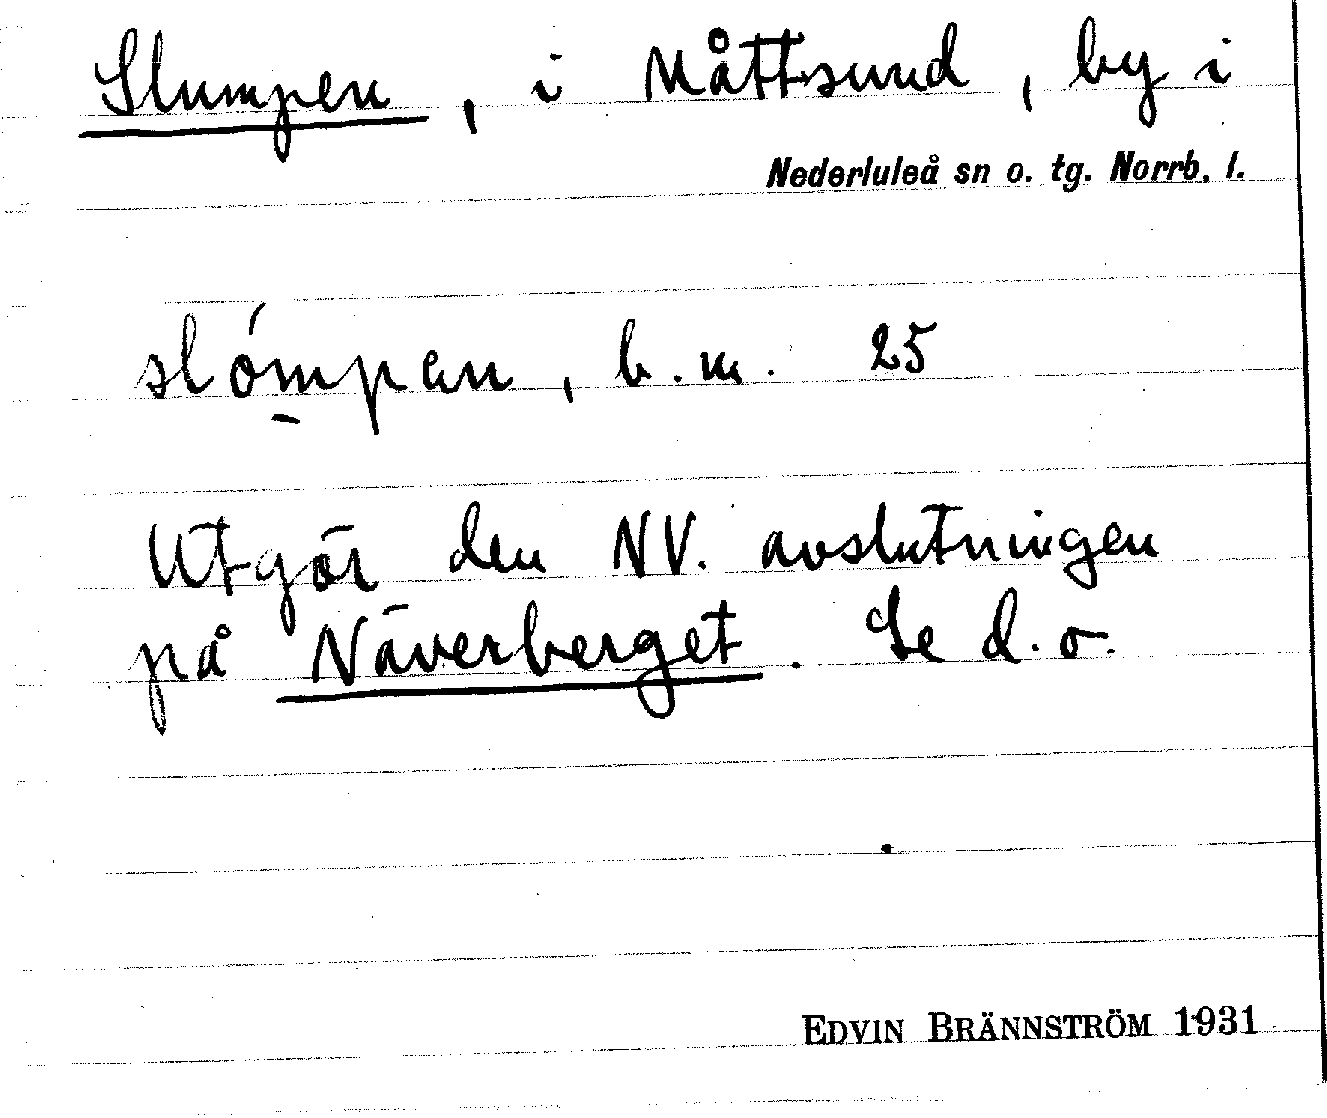 Slumpen, i Måttsund, by i
Nederluleå sn o. tg. Norrb. l.
slómpen, b.m. 25
Utgör den NV. avslutningen
på Näverberget. Se d.o.
EDVIN BRÄNNSTRÖM 1931